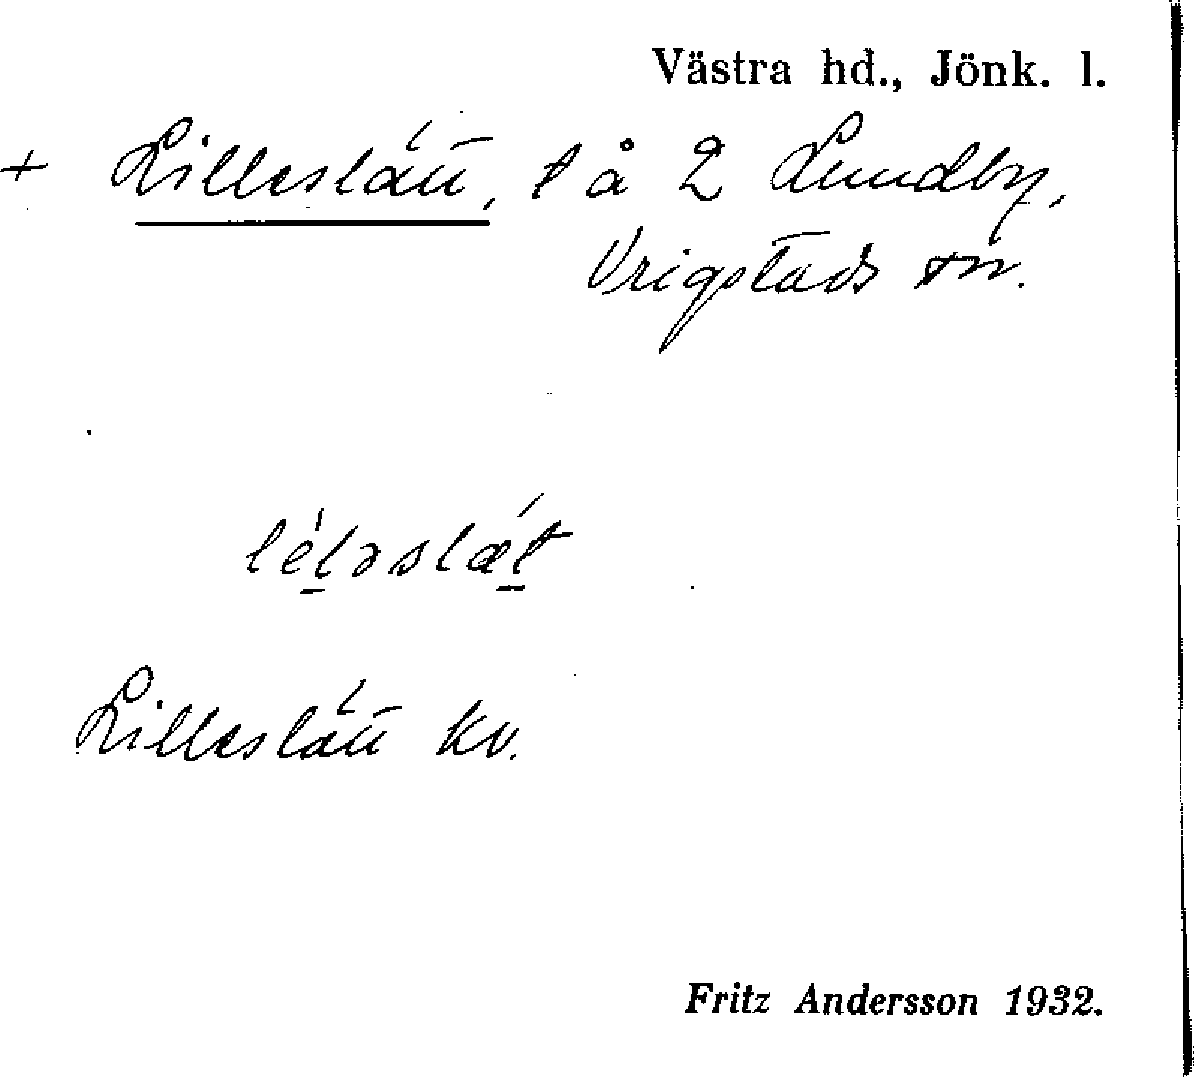 Västra hd., Jönk. l.
+ Lilleslätt, t å 2 Lundby,
Vrigstads sn.
lél̠əslǽt̠
Lilleslätt kv.
Fritz Andersson 1932.